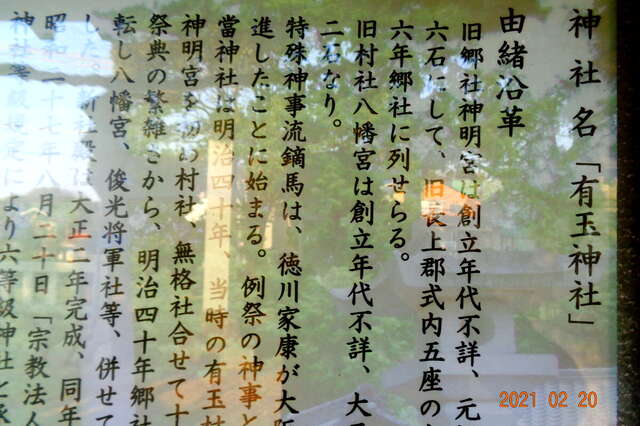 神社名「有玉神社」
由緒沿革
旧郷社神明宮は創立年代不詳、元
六石にして、旧長上郡式内五座の
六年郷社に列せらる。
旧村社八幡宮は創立年代不詳、大
二石なり。
特殊神事流鏑馬は、徳川家康が大
進したことに始まる。例祭の神事と
當神社は明治四十年、当時の有玉村
神明宮を 村社、無格社合せて十
祭典の繁雑さから、明治四十年郷社
転し八幡宮、俊光将軍社等、併せて
した。新社殿は大正二年完成、同年
昭和二十七年八月二十日「宗教法人
神社等級規定により六等級神社と
2021 02 20